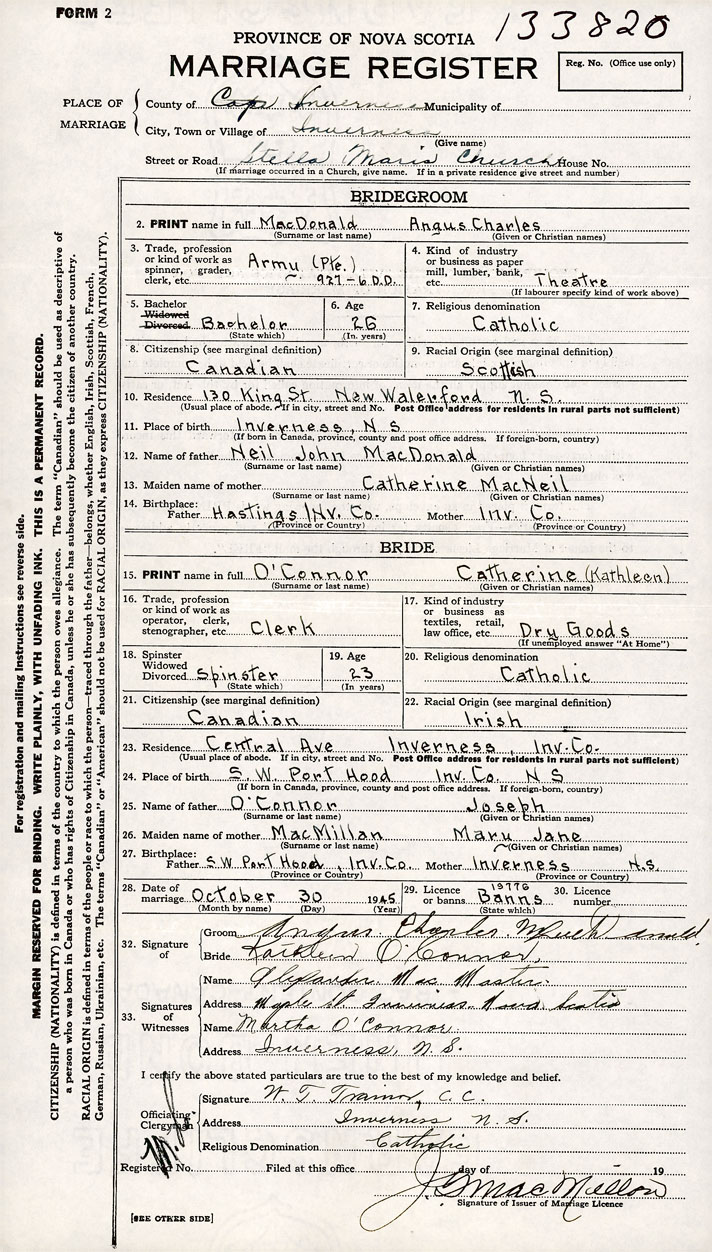 FORM 2
133820
PROVINCE OF NOVA SCOTIA
MARRIAGE REGISTER
Reg. No. (Office use only)
PLACE OF MARRIAGE
County of Cape Inverness Municipality of
City, Town or Village of Inverness
(Give name)
Street or Road Stella Maris Church House No.
(If marriage occurred in a Church, give name. If in a private residence give street and number)
BRIDEGROOM
2. PRINT name in full MacDonald Angus Charles
(Surname or last name) (Given or Christian names)
3. Trade, profession or kind of work as spinner, grader, clerk, etc. Army (Pte.) 927-6 D.D.
4. Kind of industry or business as paper mill, lumber, bank, etc. Theatre
(If labourer specify kind of work above)
5. Bachelor Widowed Divorced Bachelor
(State which)
6. Age 26
(In years)
7. Religious denomination
Catholic
8. Citizenship (see marginal definition)
Canadian
9. Racial Origin (see marginal definition)
Scottish
10. Residence 130 King St. New Waterford N.S.
(Usual place of abode. If in city, street and No. Post Office address for residents in rural parts not sufficient)
11. Place of birth Inverness, N S
(If born in Canada, province, county and post office address. If foreign-born, country)
12. Name of father Neil John MacDonald
(Surname or last name) (Given or Christian names)
13. Maiden name of mother Catherine MacNeil
(Surname or last name) (Given or Christian names)
14. Birthplace: Father Hastings Inv. Co. Mother Inv. Co.
(Province or Country) (Province or Country)
BRIDE
15. PRINT name in full O'Connor Catherine (Kathleen)
(Surname or last name) (Given or Christian names)
16. Trade, profession or kind of work as operator, clerk, stenographer, etc. Clerk
17. Kind of industry or business as textiles, retail, law office, etc. Dry Goods
(If unemployed answer "At Home")
18. Spinster Widowed Divorced Spinster
(State which)
19. Age 23
(In years)
20. Religious denomination
Catholic
21. Citizenship (see marginal definition)
Canadian
22. Racial Origin (see marginal definition)
Irish
23. Residence Central Ave Inverness, Inv. Co.
(Usual place of abode. If in city, street and No. Post Office address for residents in rural parts not sufficient)
24. Place of birth S.W. Port Hood Inv. Co. N S
(If born in Canada, province, county and post office address. If foreign-born, country)
25. Name of father O'Connor Joseph
(Surname or last name) (Given or Christian names)
26. Maiden name of mother MacMillan Mary Jane
(Surname or last name) (Given or Christian names)
27. Birthplace: Father S W Port Hood, Inv. Co. Mother Inverness N.S.
(Province or Country) (Province or Country)
28. Date of marriage October 30 1945
(Month by name) (Day) (Year)
29. Licence or banns 19776 Banns
(State which)
30. Licence number
32. Signature of
Groom Angus Charles MacDonald
Bride Kathleen O'Connor
33. Signatures of Witnesses
Name Alexander Mac Master
Address Maple St Inverness Nova Scotia
Name Martha O'Connor
Address Inverness, N. S.
I certify the above stated particulars are true to the best of my knowledge and belief.
Officiating Clergyman
Signature W. T. Trainor, C. C.
Address Inverness N. S.
Religious Denomination Catholic
Registered No. Filed at this office day of 19
J. G. MacMillan
Signature of Issuer of Marriage Licence
[SEE OTHER SIDE]
For registration and mailing instructions see reverse side.
MARGIN RESERVED FOR BINDING. WRITE PLAINLY, WITH UNFADING INK. THIS IS A PERMANENT RECORD.
CITIZENSHIP (NATIONALITY) is defined in terms of the country to which the person owes allegiance. The term "Canadian" should be used as descriptive of
a person who was born in Canada or who has rights of Citizenship in Canada, unless he or she has subsequently become the citizen of another country.
RACIAL ORIGIN is defined in terms of the people or race to which the person—traced through the father—belongs, whether English, Irish, Scottish, French,
German, Russian, Ukrainian, etc. The terms "Canadian" or "American" should not be used for RACIAL ORIGIN, as they express CITIZENSHIP (NATIONALITY).